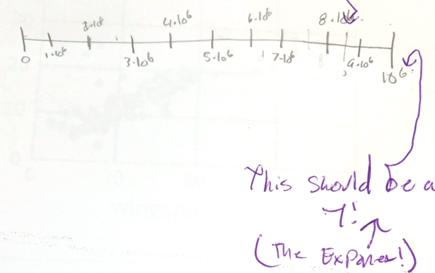 2·10⁶ 4·10⁶ 6·10⁶ 8·10⁶
0 1·10⁶ 3·10⁶ 5·10⁶ 7·10⁶ 9·10⁶ 10⁶
This should be a
7!
(The Exponent!)